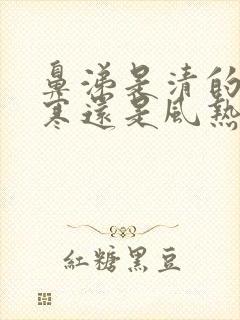 鼻涕是清的
寒還是風熱
紅糖黑豆